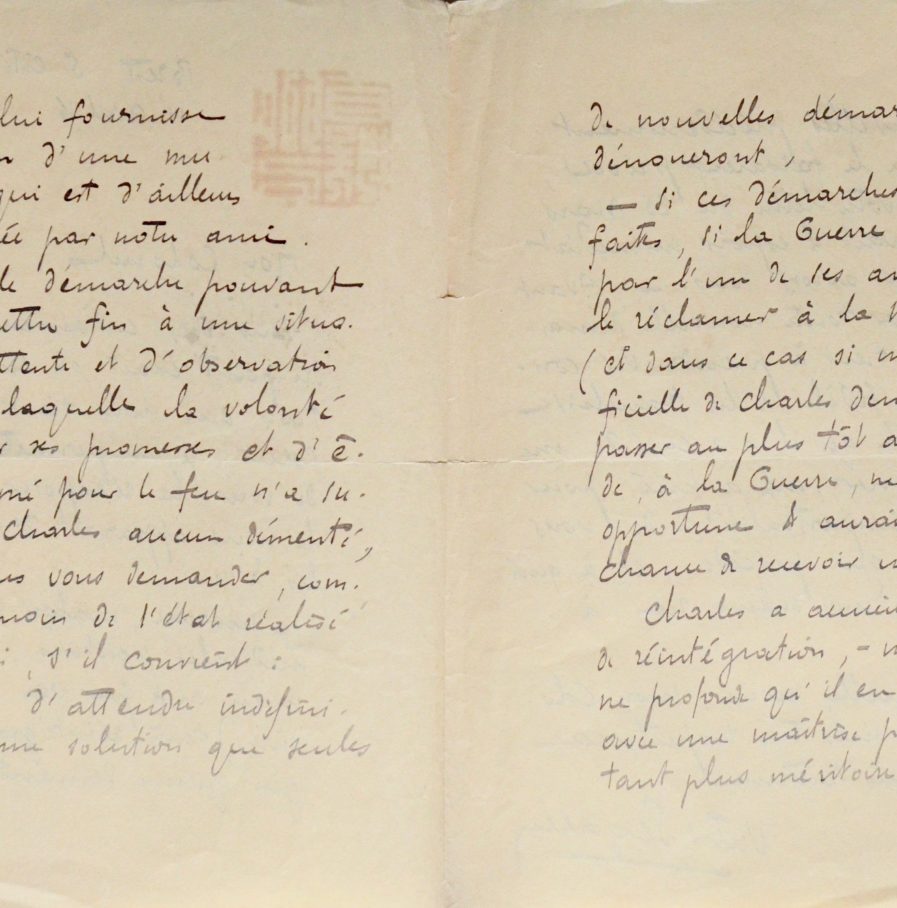 lui fournisse
d'une mu
qui est d'ailleurs
ée par notre ami.
le démarche pouvant
ettre fin à une situa-
ttente et d'observation
laquelle la volonté
r ses promesses et d'ê-
mé pour le feu n'a su-
Charles aucun démenti,
us vous demander, com-
moin de l'état réalisé
i, s'il convient :
d'attendre indéfini-
une solution que seules
de nouvelles démar
dénoueront,
— si ces démarches
faites, si la Guerre
par l'un de ses a
le réclamer à la
(et dans ce cas si un
ficielle de Charles de
passer au plus tôt a
de, à la Guerre, ne
opportune & aurai
chance de recevoir u
Charles a aucun
de réintégration, – u
ne profonde qu'il en
avec une maîtrise p
tant plus méritoire